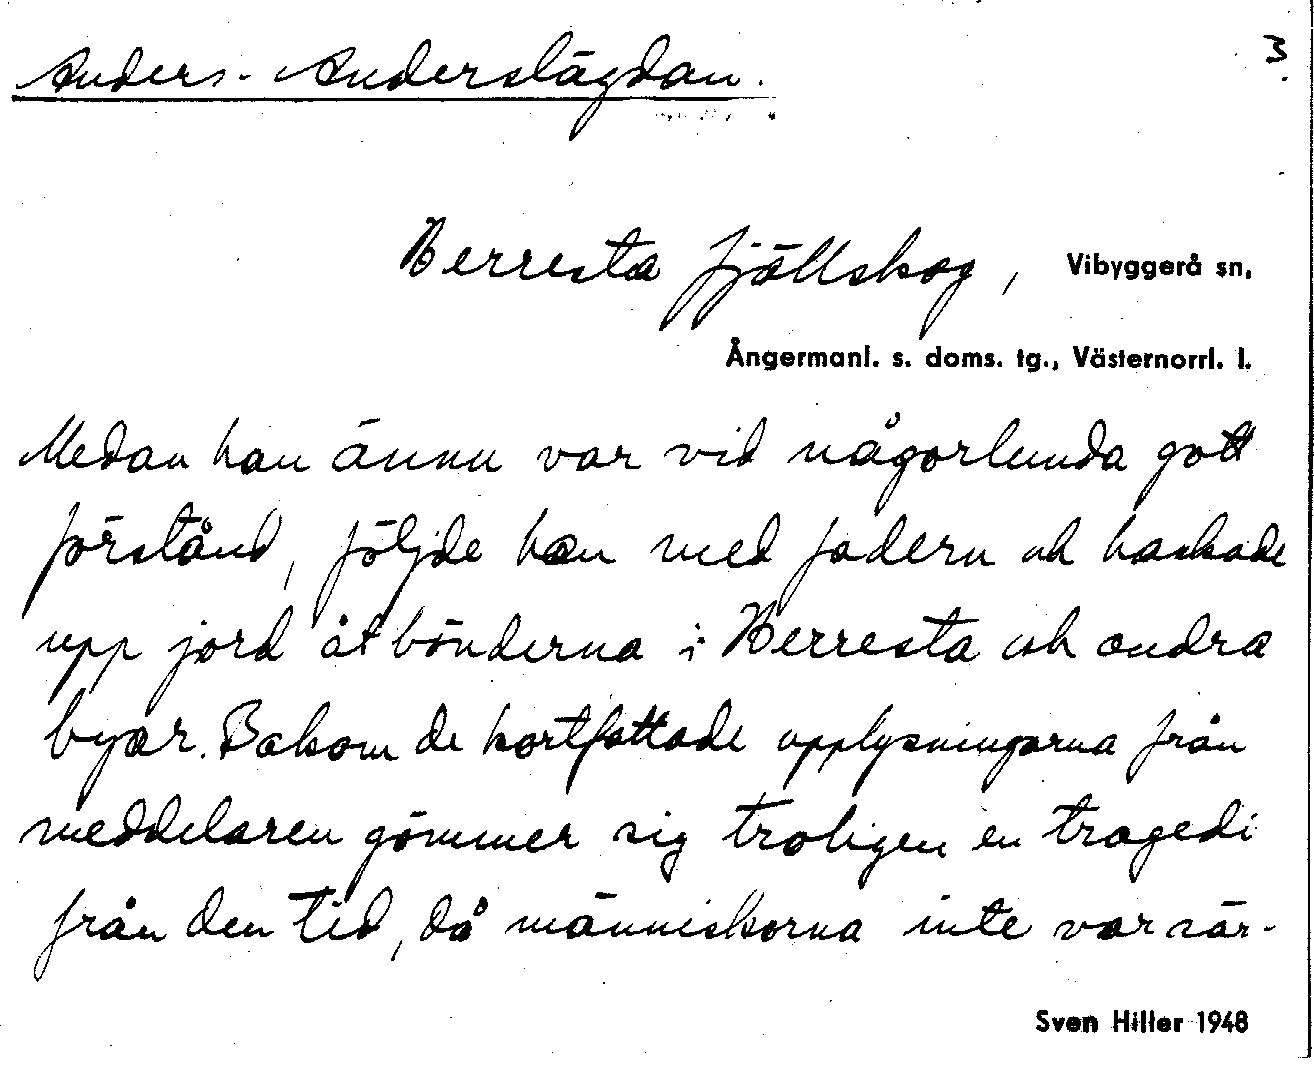 Anders-Anderslägdan.
3.
Berresta fjällskog, Vibyggerå sn,
Ångermanl. s. doms. tg., Västernorrl. l.
Medan han ännu var vid någorlunda gott
förstånd, följde han med fadern och hackade
upp jord åt bönderna i Berresta och andra
byar. Bakom de kortfattade upplysningarna från
meddelaren gömmer sig troligen en tragedi
från den tid, då människorna inte var sär-
Sven Hiller 1948